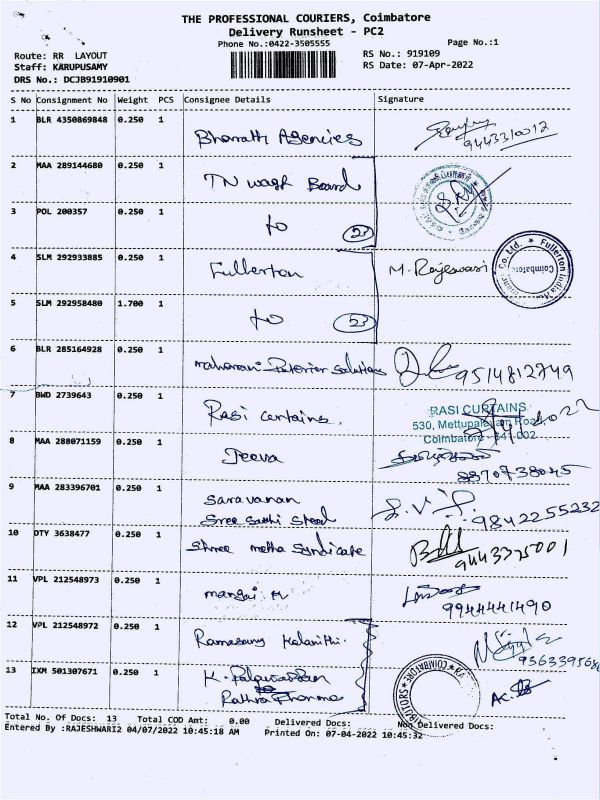 THE PROFESSIONAL COURIERS, Coimbatore
Delivery Runsheet - PC2
Phone No.:0422-3505555
Page No.:1
Route: RR LAYOUT
RS No.: 919109
Staff: KARUPUSAMY
RS Date: 07-Apr-2022
DRS No.: DCJB91910901
S No Consignment No Weight PCS Consignee Details Signature
1 BLR 4350869848 0.250 1
Bharathi Agencies
9443310012
2 MAA 289144680 0.250 1
TN waqf Board
3 POL 200357 0.250 1
to 53
4 SLM 292933885 0.250 1
Fullerton M. Rajeswari
Fullerton India
Co. Ltd.
Coimbatore
5 SLM 292958480 1.700 1
to 53
6 BLR 285164928 0.250 1
maharani Solutions 9514812749
7 BWD 2739643 0.250 1
Rasi curtains.
RASI CURTAINS
530, Mettupalayam Road,
Coimbatore - 641 002
8 MAA 288071159 0.250 1
Jeeva
8870738045
9 MAA 283396701 0.250 1
Saravanan
Sree Sakthi Steel
9842255232
10 OTY 3638477 0.250 1
Shree metha Syndicate
9443325001
11 VPL 212548973 0.250 1
mangai M
9944441490
12 VPL 212548972 0.250 1
Ramasamy Kalanithi.
13 IXM 501307671 0.250 1
K.
Rathna Pharma
COIMBATORE
Total No. Of Docs: 13 Total COD Amt: 0.00 Delivered Docs: Non Delivered Docs:
Entered By :RAJESHWARI2 04/07/2022 10:45:18 AM Printed On: 07-04-2022 10:45:32